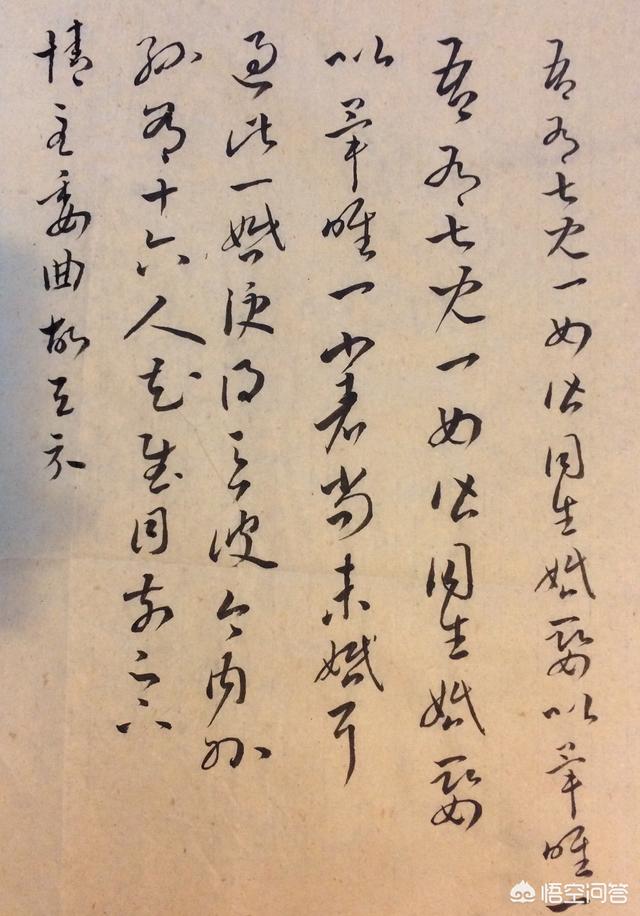 吾有七兒一女皆同生婚娶以畢唯一
吾有七兒一女皆同生婚娶
以畢唯一小者尚未婚耳
過此一婚便得至彼今內外
孫有十六人足慰目前足下
情至委曲故具示
悟空问答